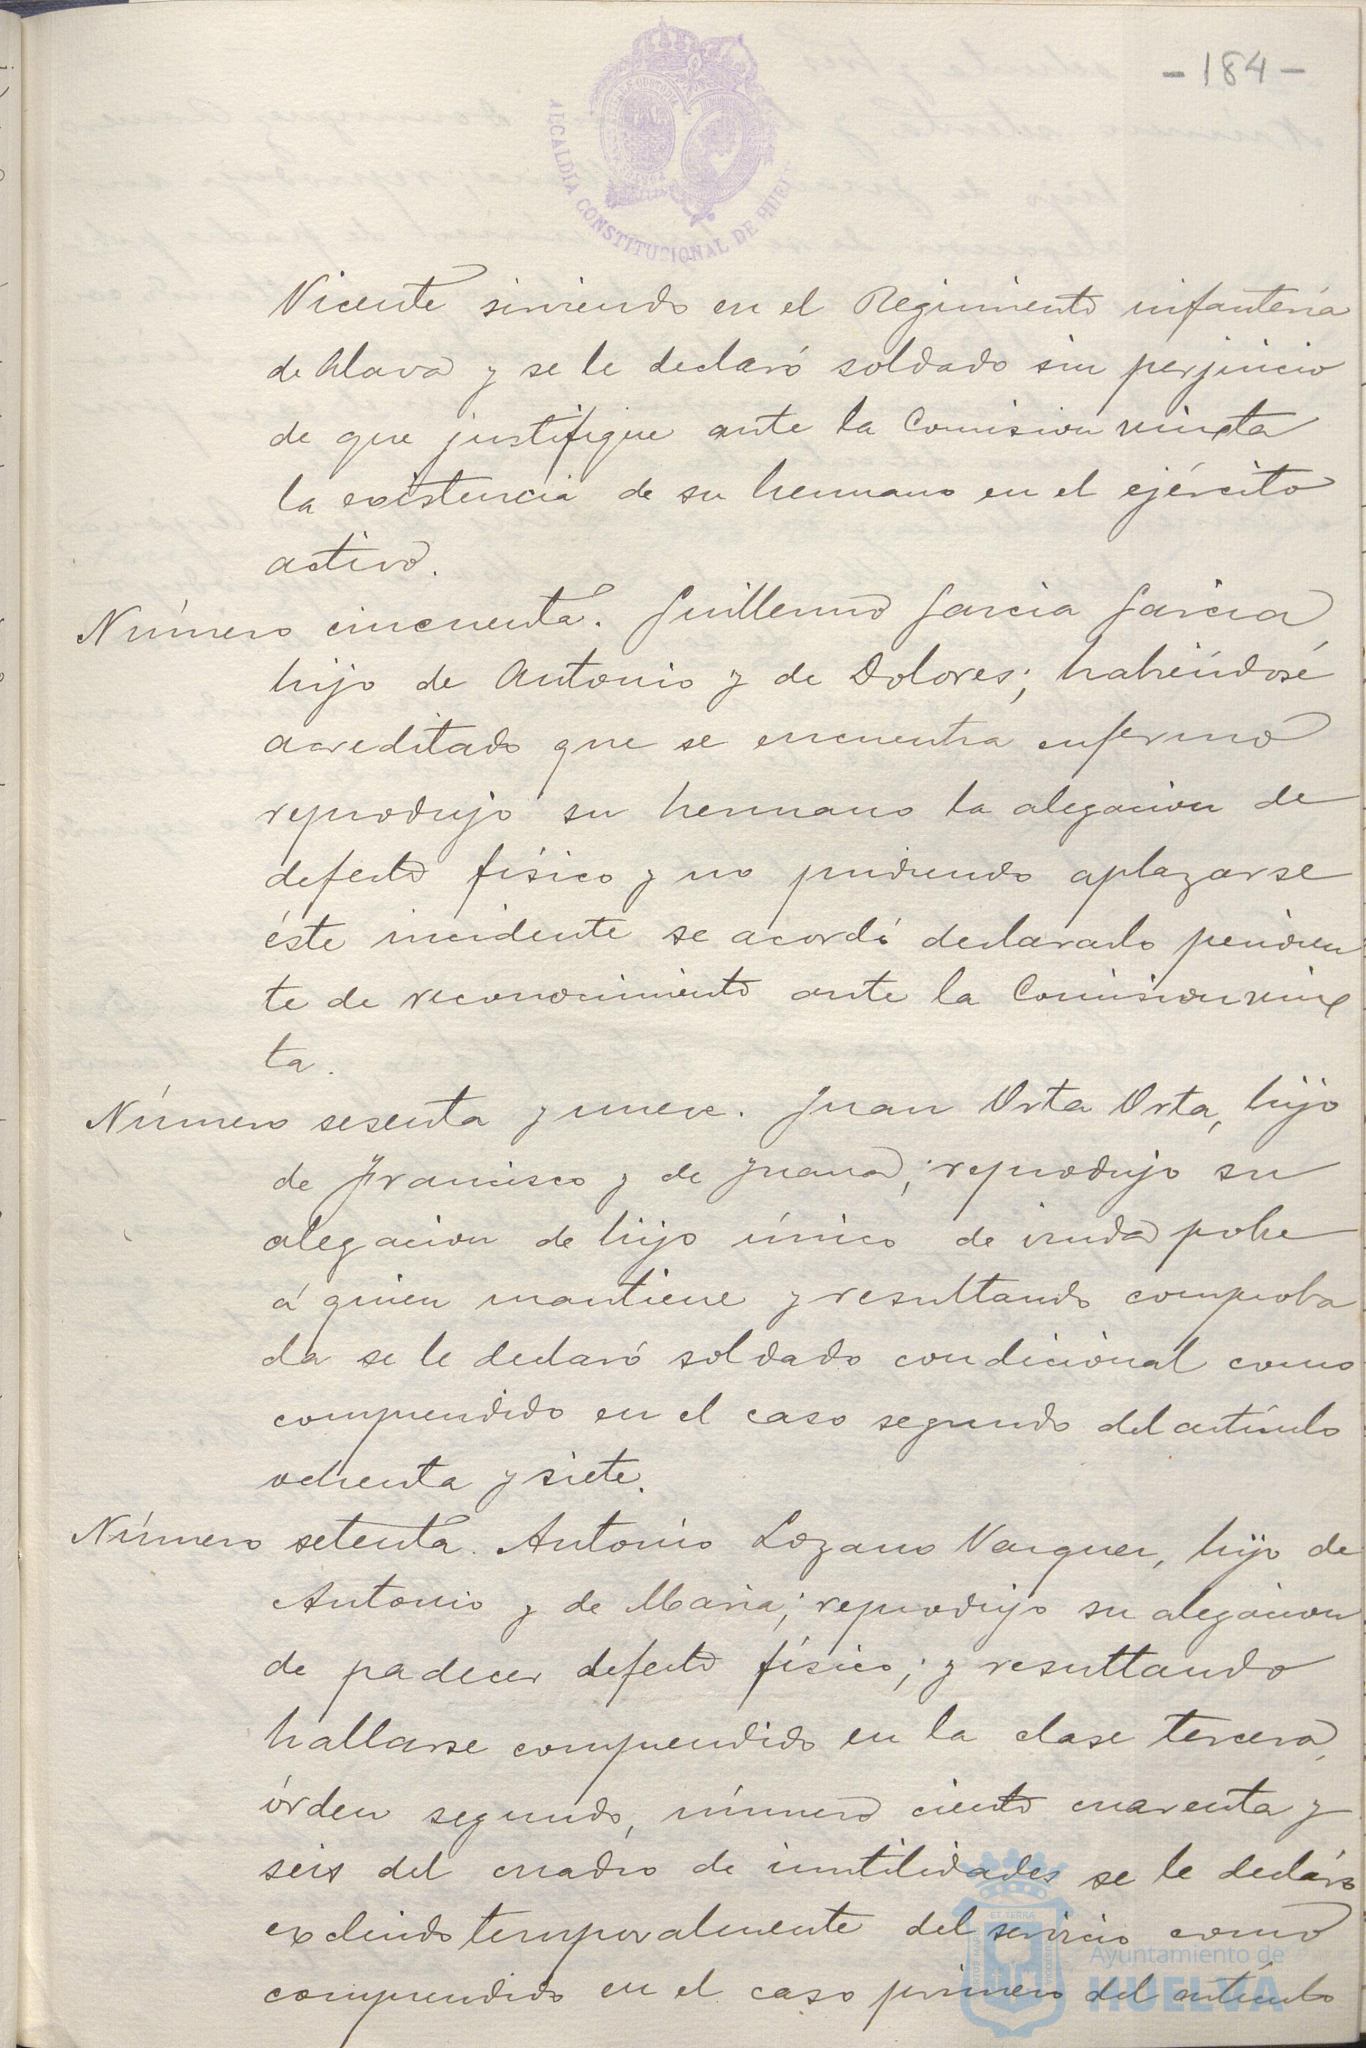 - 184 -
ALCALDIA CONSTITUCIONAL DE HUELVA
Vicente sirviendo en el Regimiento infanteria
de Alava y se le declaró soldado sin perjuicio
de que justifique ante la Comision mixta
la existencia de su hermano en el ejército
activo.
Número cincuenta. Guillermo Garcia Garcia
hijo de Antonio y de Dolores; habiéndosé
acreditado que se encuentra enfermo
reprodujo su hermano la alegacion de
defecto físico y no pudiendo aplazarse
éste incidente se acordó declararlo pendien
te de reconocimiento ante la Comision mix
ta.
Número sesenta y nueve. Juan Orta Orta, hijo
de Francisco y de Juana; reprodujo su
alegacion de hijo único de viuda pobre
á quien mantiene y resultando comproba
da se le declaró soldado condicional como
comprendido en el caso segundo del artículo
ochenta y siete.
Número setenta. Antonio Lozano Vazquez, hijo de
Antonio y de Maria; reprodujo su alegacion
de padecer defecto físico; y resultando
hallarse comprendido en la clase tercera,
órden segundo, número ciento cuarenta y
seis del cuadro de inutilidades se le declaró
excluido temporalmente del servicio como
comprendido en el caso primero del artículo
Ayuntamiento de
HUELVA